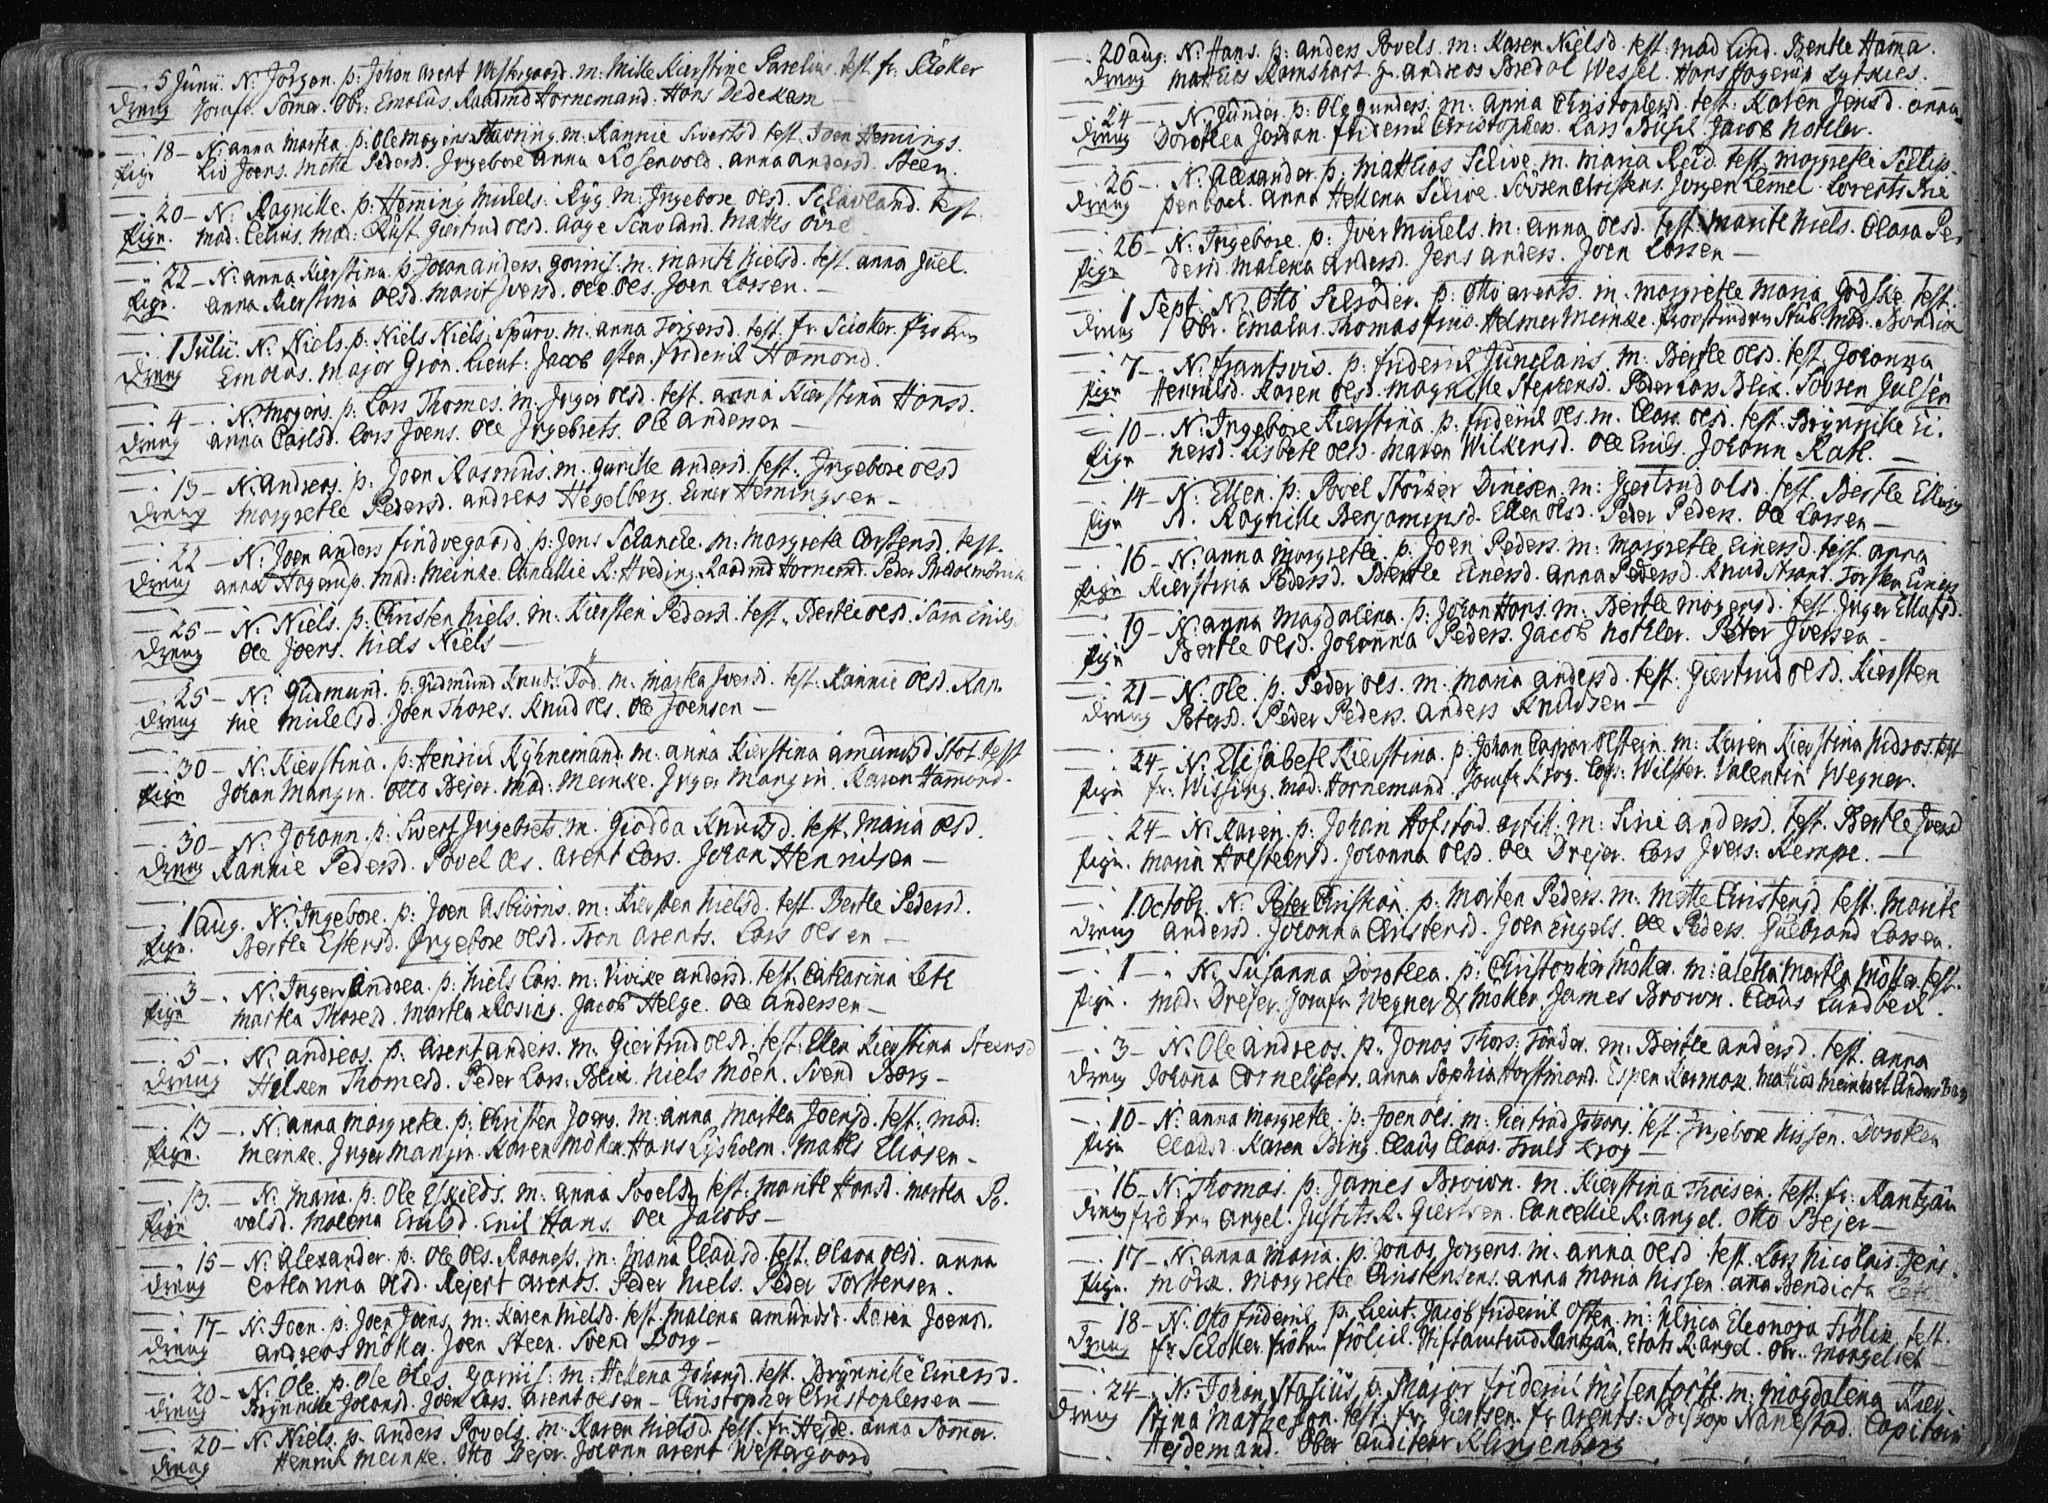 5 Junii. N: Jörgen. p: Johan Arent Westergaard. m: Mille Kierstine Parelius. test. fr. Schöller
dreng Jomfr. Sömer. Obr: Emahus. Raadmd Hornemand. Hans Dedekam
18 - N: anna Martha. p: Ole Mogens Havning. m: Rannie Sivertsd. test. Joen Hemings.
Pige Liv Joens. Mette Pedersd. Ingebore anna Rosenvold. anna andersd. Steen.
20 - N: Ragnille. p: Heming Michels: Ryg m: Ingebore olsd. Schavland. test.
Pige. mad: Celius. mad: Rust. Giertrud olsd. Aage Schavland. Mathis övre
22 - N: anna Kierstina. p: Johan anders. garnis: m: marit Nielsd. test. anna Juel.
Pige. anna Kierstina olsd. Marit Iversd. Ole Ols. Joen Larsen. -
1 Julii. N: Niels. p: Niels Niels. Spurv. m. anna Torgersd. test. fr. Schöller. fröken
dreng Emahus. major Grön. Lieut: Jacob Osten. friderich Hamond.
4 - N: mogens. p: Lars Thomes. m: Inger olsd. test. anna Kierstina Hansd.
dreng anna Carlsd. Lars Joens. Ole Ingebrets. Ole andersen -
13 - N: andreas. p: Joen Rasmus. m. Gunille andersd. test. Ingebore olsd
dreng Margrethe Pedersd. andreas Hegelberg. Einer Hemingsen -
22 - N: Joen anders findvegaard. p: Jens Schancke. m: Margreta Carstensd. test.
dreng anna Hagerup. mad: Meinke. Cancellie R: Hveding. Raadmd Hornemd. Peder
25 - N: Niels. p: Christen Niels. m. Kiersten Pedersd. test. Berthe olsd. Sara Erichs
dreng Ole Joens. Niels Niels -
25 - N: Gudmund. p: Gudmund Knuds. Tod. m. Martha Iversd. test. Rannie olsd. Ran-
dreng nie Michelsd. Joen Thores. Knud ols. Ole Joensen -
30 - N: Kierstina. p: Henrich Kyhnemand. m. anna Kierstina amundsd Stol. test
Pige Johan Mangin. Otto Bejer. mad: Meinke. Inger Mangin. Karen Hamond.
30 - N: Johann. p: Sivert Ingebrets. m. Giodda Knudsd. test. Maria olsd.
dreng Rannie Pedersd. Povel Ols. Arent Lars. Johan Henrichsen -
1 aug. N: Ingebore. p: Joen Asbiörns. m: Kiersten Nielsd. test. Berthe Pedersd.
Pige. Berthe Estersd. Ingebore olsd. Tron Arents. Lars Olsen -
3 - N: Inger Andrea. p: Niels Lars. m: Vivike andersd. test. Catharina Leth
Pige Martha Thoresd. Martha Rosing. Jacob Helge. Ole Andersen -
5 - N: andreas. p: Arent anders. m: Giertrud olsd. test: Ellen Kierstina Steensd
dreng Helken Thomesd. Peder Lars: Blix. Niels Möen. Svend Borg -
13 - N: anna Margrethe. p: Christen Joens. m: anna Martha Joensd. test: mad:
Pige. Meinke. Inger Mangin. Karen Möller. Hans Lysholm. Mathis Eliasen -
13. - N: Maria. p: Ole Eskilds. m: anna Povelsd. test: Marith Hansd. Martha Po-
Pige velsd. Malena Erichsd. Erich Hans. Ole Jacobs -
15 - N: Alexander. p: Ole Ols. Raaness. m: Maria Claudsd. test. Olava olsd. anna
dreng Catharina olsd. Rejert Arents. Peder Niels. Peder Torstensen.
17 - N: Joen. p: Joen Joens. m: Karen Nielsd. test. Malena amundsd. Karen Joensd.
dreng Andreas Möller. Joen Steen. Svend Borg -
20 - N: Ole. p: Ole Oles. garnis: m: Helena Johansd. test. Brynnille Einersd.
dreng Brynnille Johansd. Joen Lars. Arent olsen - Christopher Christophersen -
20 - N: Niels. p: anders Povels. m. Karen Nielsd. test. fr: Hejde. anna Sömer.
dreng Henrich Meinke. Otto Bejer. Johann Arent Westergaard
20 aug. N: Hans. p: anders Povels. m: Karen Nielsd. test: mad Lind. Berthe Hama.
dreng Mathias Ramshart. Hr. andreas Bredal Wessel. Hans Hagerup Lytskies.
24 - N: Gunder. p: Ole Gunders. m: anna Christophersd. test. Karen Jensd. anna
dreng Dorothea Jordan. friderich Christophers. Lars Busch. Jacob Kohler.
26 - N: Alexander. p: Mathias Schive. m. Maria Reid. test: Margrethe Schip-
dreng penbach. anna Hellena Schive. Sören Christens. Jörgen Lemel. Lorents Bie
26 - N: Ingebore. p: Iver Michels. m: anna olsd. test. Marit Niels. Olava Pe-
Pige dersd. Malena Andersd. Jens anders. Joen Larsen -
1 Sept. N. Otto Schröder. p: Otto Arents. m. Margrethe Maria Godske. test.
dreng Obr. Emahus. Thomas Finne. Helmer Meinke. Mad. Bondix
7 - N: frantsvis. p: friderich Junghans. m: Berthe Olsd. test. Johanna
Pige Henrichsd. Karen olsd. Magnille Stephensd. Peder Lars. Blix. Sören Julsen
10 - N: Ingebore Kierstina. p: friderich ols. m. Clara olsd. test. Brynnille Ei-
Pige nersd. Lisbeth olsd. Maren Wilkensd. Ole Erichs. Johann Rath. -
14 - N: Ellen. p: Povel Störker Dinesen. m: Giertrud olsd. test. Berthe Elling
Pige sd. Ragnille Benjaminsd. Ellen olsd. Peder Peders. Ole Larsen -
16 - N: anna Margrethe. p: Joen Peders. m: Margrethe Einersd. test. anna
Pige Kierstina Pedersd. Berthe Einersd. anna Pedersd. Knud Strand. Torsten Einers
19 - N: anna Magdalena. p: Johan Hans. m: Berthe Mogensd. test. Inger Ellefsd.
Pige Berthe olsd. Johanna Peders. Jacob Kohler. Peter Iversen -
21 - N: Ole. p. Peder ols. m: Maria andersd. test. Giertrud olsd. Kiersten
dreng Petersd. Peder Peders. anders Knudsen -
24 - N: Elisabeth Kierstina. p. Johan Caspar Olstein. m: Karen Kierstina Nidros. test
Pige fr: Wissing. mad: Hornemand. Jomfr Krog. Capt: Wilster. Valentin Wegner.
24 - N: Karen. p: Johan Hofstad. artill. m: Siri Anders. test. Berthe Iversd
Pige. Maria Halstensd. Johanna olsd. Ole Drejer. Lars Ivers: Kempe. -
1 Octobr. N: Peter Christian. p: Morten Peders. m: Mette Christensd. test. Marith
dreng Andersd. Johanna Christensd. Joen Engels. Ole Peders. Gulbrand Larsen.
1 - N: Susanna Dorothea. p: Christopher Möller. m: aletha Martha Möller. test.
Pige. mad: Drejer. Jomfr Wegner & Möller. James Brown. Claus Lundbeck.
3 - N: Ole Andreas. p: Jonas Thors: Tönder. m: Berthe Andersd. test. anna
dreng Johanna Cornelisens. anna Sophia Horstmand. Espen Kermas. Mathias Meinhart.
10 - N: anna Margrethe. p: Joen ols. m: Giertrud Johans. test. Ingebore Nissen. Dorothea
Pige Claudsd. Karen Bing. Claus Claus. Truls Krog -
16 - N: Thomas. p: James Brown. m. Kierstina Thoisen. test: fr: Rantzau
dreng fröken Angel. Justits R. Giertsen. Cancellie R: Angel. Otto Bejer -
17 - N: anna Maria. p: Jonas Jörgens. m: anna olsd. test. Lars Nicolais. Jens.
Pige. Mörk. Margrethe Christensens. anna Maria Nissen. ana Bendicta
18 - N: Otto friderich. p: Lieut. Jacob friderich Osten. m: Ulrica Eleonora Frölich. test.
dreng fr Schöller. fröken Frölich. Stiftamtmd Rantzau. Etats R. Angel. Obr. Mangelset -
24 - N: Johan Stasius. p. Major friderich Mysenfortt. m: Magdalena Kier-
dreng stina Matheson. test: fr: Giertsen. fr Arents. Biskop Nannestad. Capitain
Hejdemand. Ober Auditeur Klingenberg